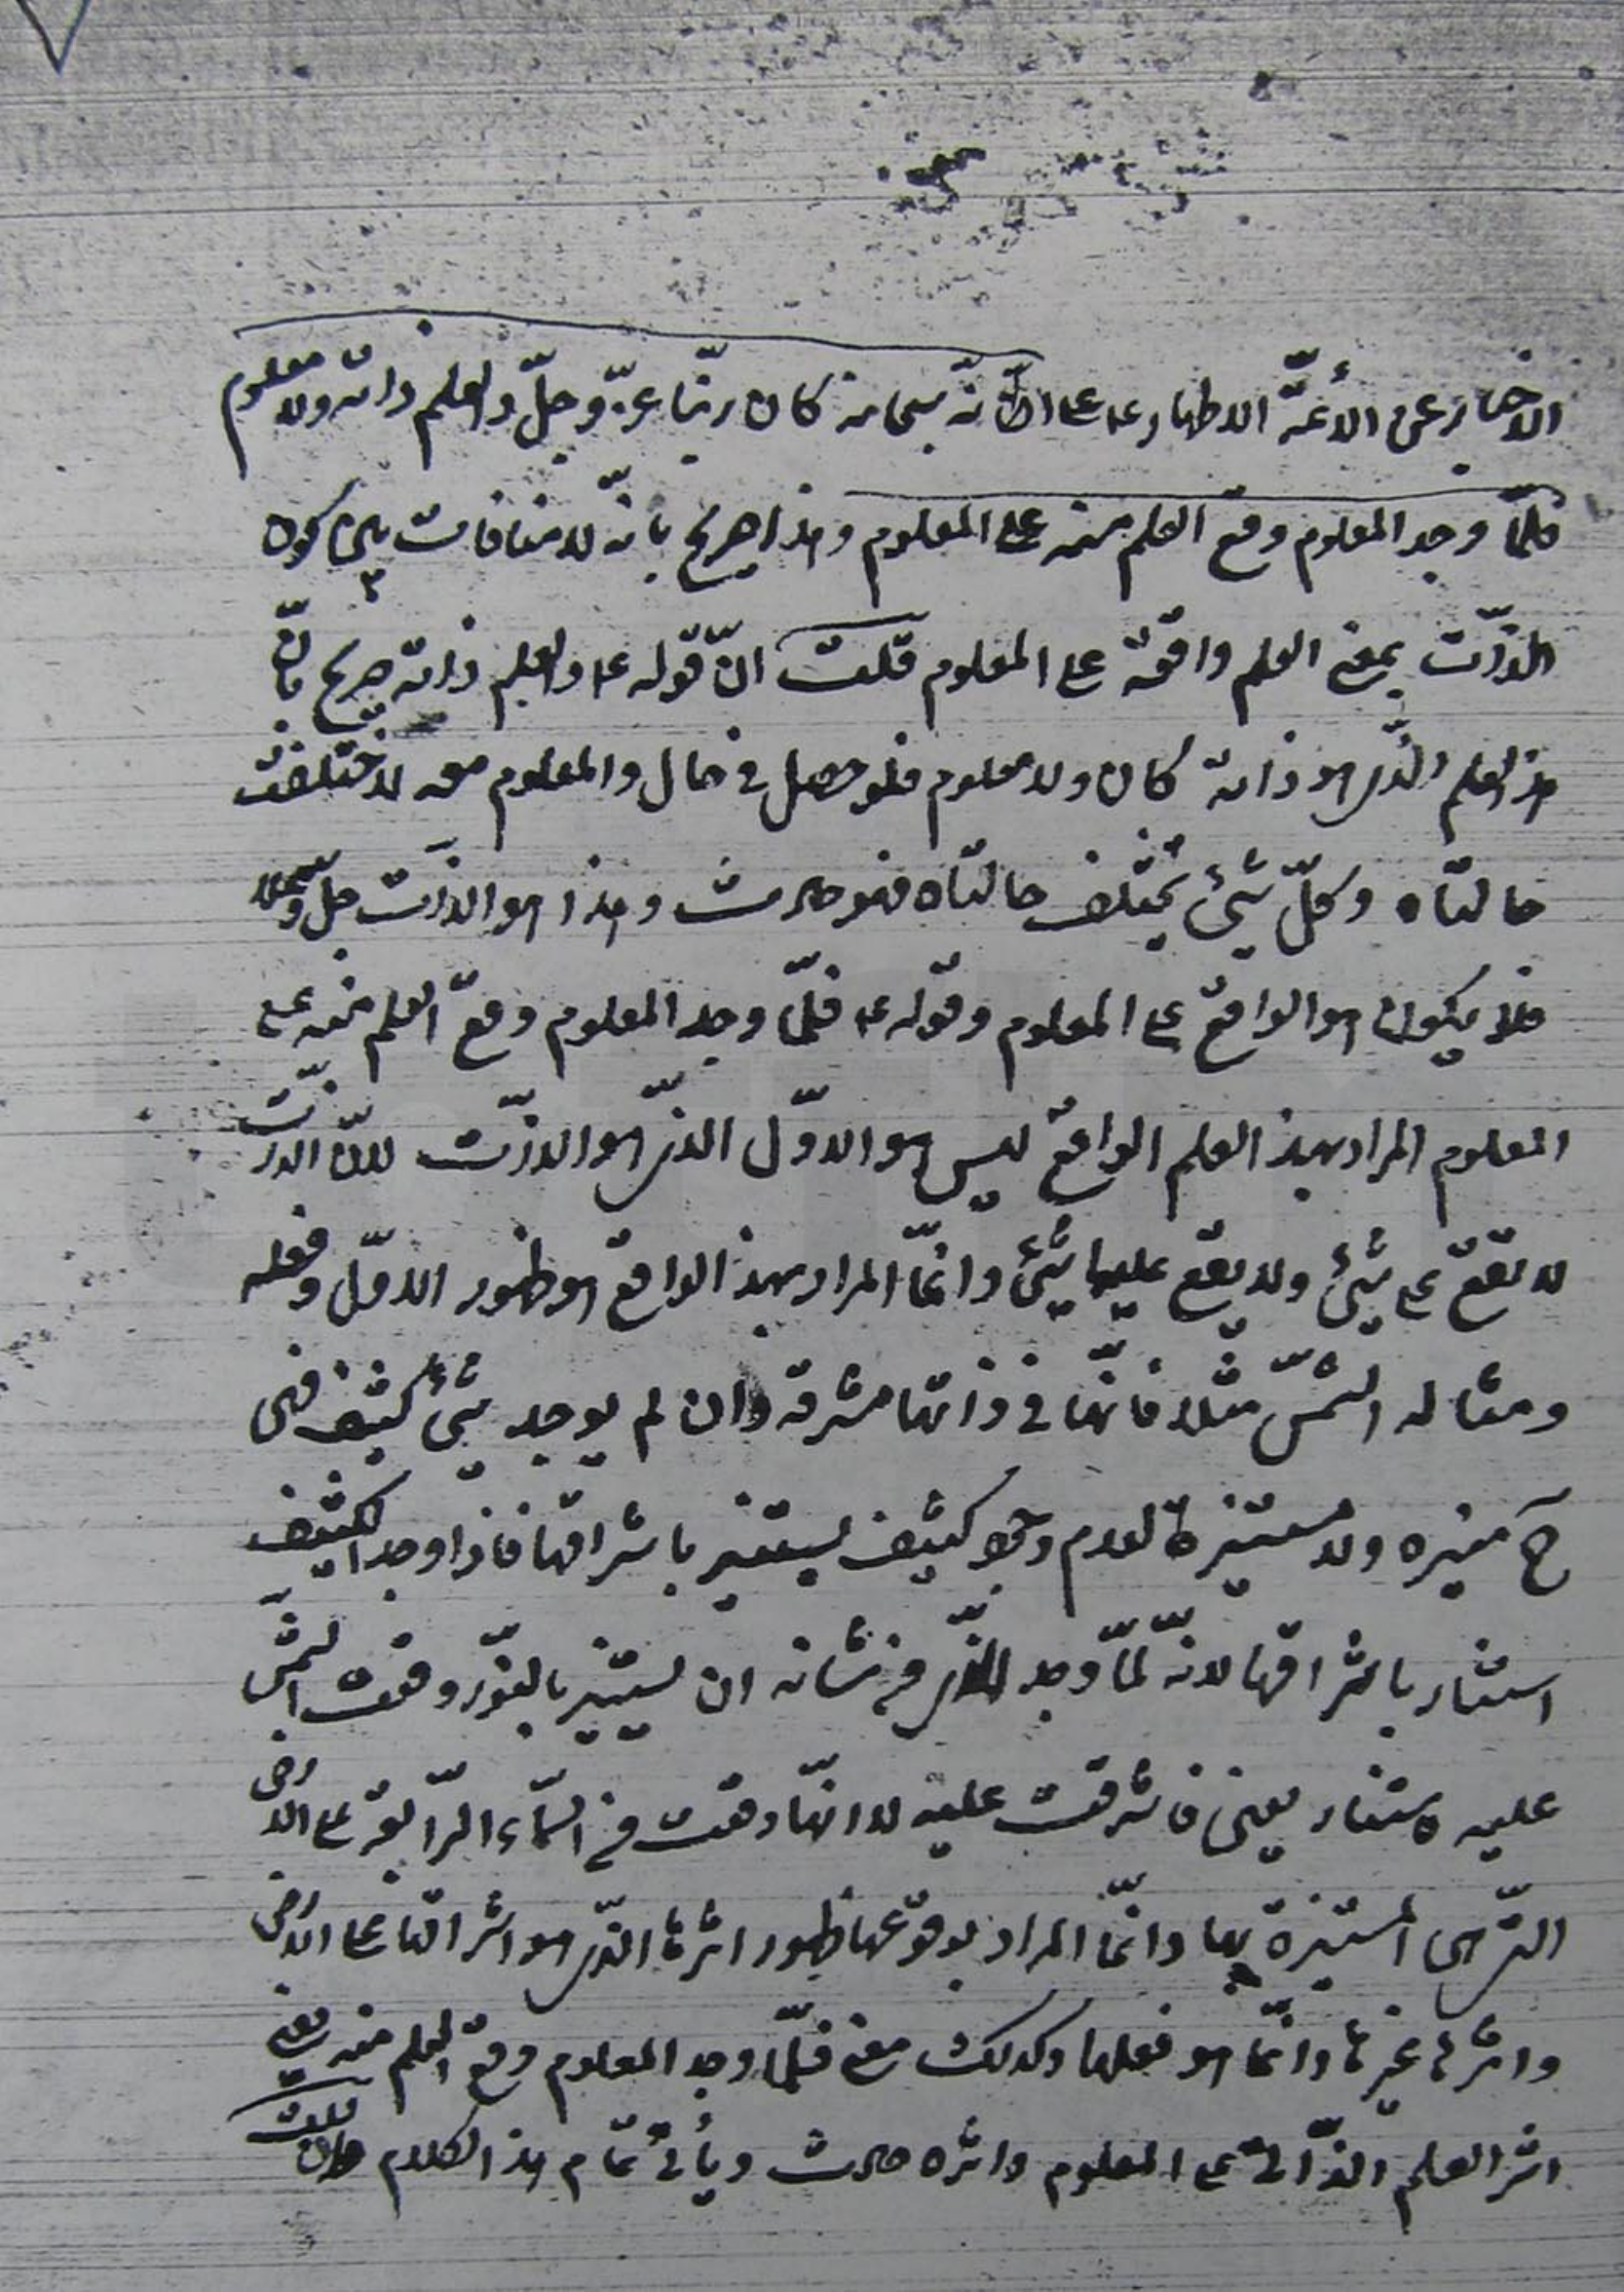 الاخبار عن الأئمّة الاطهار ع على انّه سبحانه كان ربّنا عزّ وجلّ والعلم ذاته ولا معلوم
فلمّا وجد المعلوم وقع العلم منه على المعلوم وهذا صريح بانّه لا منافات بين كون
الذّات بمعنى العلم واقعة على المعلوم قلت انّ قوله ع والعلم ذاته صريح بانّ
هذا العلم الّذي هو ذاته كان ولا معلوم فلو حصل في حال والمعلوم معه لاختلفت
حالتاه وكلّ شيئ تختلف حالتاه فهو حادث وهذا هو الذّات جلّ و
فلا يكون هو الواقع على المعلوم وقوله ع فلمّا وجد المعلوم وقع العلم منه على
المعلوم المراد بهذا العلم الواقع ليس هو الاوّل الذّي هو الذّات لانّ الذّات
لا تقع على شيئ ولا يقع عليها شيئ وانّما المراد بهذا الواقع هو ظهور الاوّل وفعله
ومثاله الشّمس مثلا فانّها في ذاتها مشرقة وان لم يوجد شيئ كثيف فهى
ح منيره ولا مستنيرة لعدم وجود كثيف يستنير باشراقها فاذا وجد الكثيف
استنار باشراقها لانّه لمّا وجد الذّي من شانه ان يستنير بالنّور وقعت الشّمس
عليه فاستنار يعنى فاشرقت عليه لا انّها وقعت من السّماء الرّابعة على الارض
التّي هى المستنيرة بها وانّما المراد بوقوعها ظهور اثرها الذّي هو اشراقها على الارض
واثرها غيرها وانّما هو فعلها وكذلك معنى فلمّا وجد المعلوم وقع العلم منه يعنى
اثر العلم الذّاتى على المعلوم واثره حادث ويأتى تمام هذا الكلام فان قلت